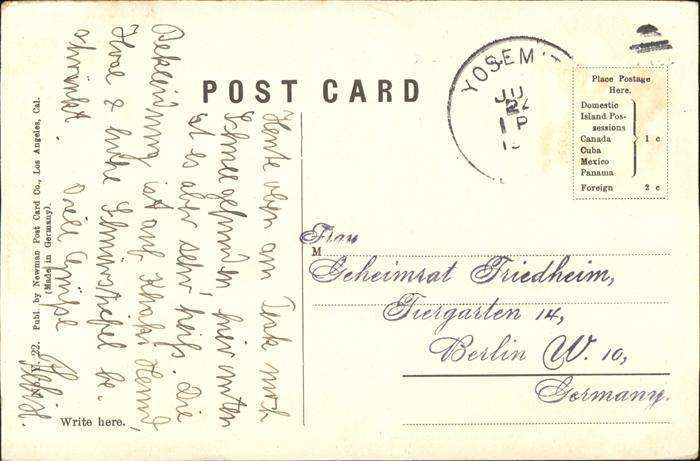 POST CARD
YOSEM
JU
22
1 P
1
Place Postage
Here.
Domestic
Island Pos-
sessions
Canada
Cuba
Mexico
Panama
1 c
Foreign 2 c
Heute oben am noch
Schnee gefunden hier unten
ist es aber sehr heiß. Die
Bekleidung ist auf Khaki Hemd
Hose & hohe Schnürstiefel be-
schränkt. Viele Grüße
Frau
M
Geheimrat Friedheim,
Tiergarten 14,
Berlin W. 10,
Germany.
22. Publ. by Newman Post Card Co., Los Angeles, Cal.
(Made in Germany).
Write here.